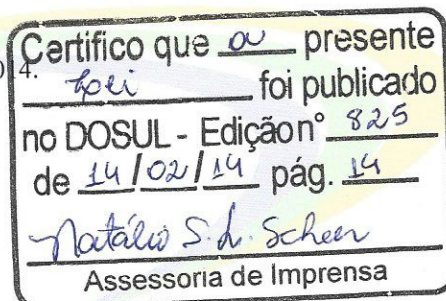 Certifico que a presente
4.
Lei foi publicado
no DOSUL - Edição nº 825
de 14/02/14 pág. 14
Natálio S. L. Scheer
Assessoria de Imprensa